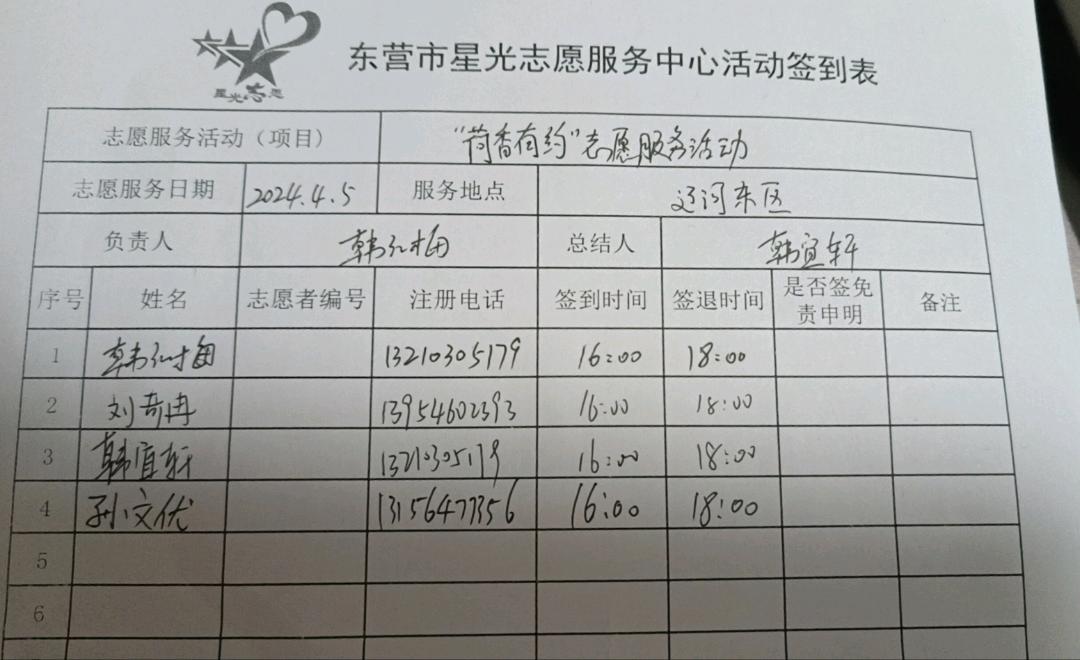 星光志愿
东营市星光志愿服务中心活动签到表
志愿服务活动（项目） “荷香有约”志愿服务活动
志愿服务日期 2024.4.5 服务地点 辽河东区
负责人 韩红梅 总结人 韩宜轩
序号 姓名 志愿者编号 注册电话 签到时间 签退时间 是否签免责申明 备注
1 韩红梅 13210305179 16:00 18:00
2 刘奇冉 13954602393 16:00 18:00
3 韩宜轩 13210305179 16:00 18:00
4 孙文优 13156477356 16:00 18:00
5
6